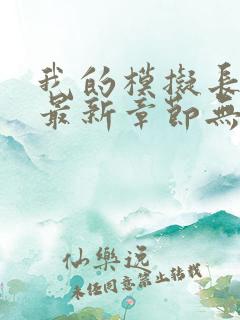 我的模擬長
最新章節無
仙樂逍
未经同意禁止转载